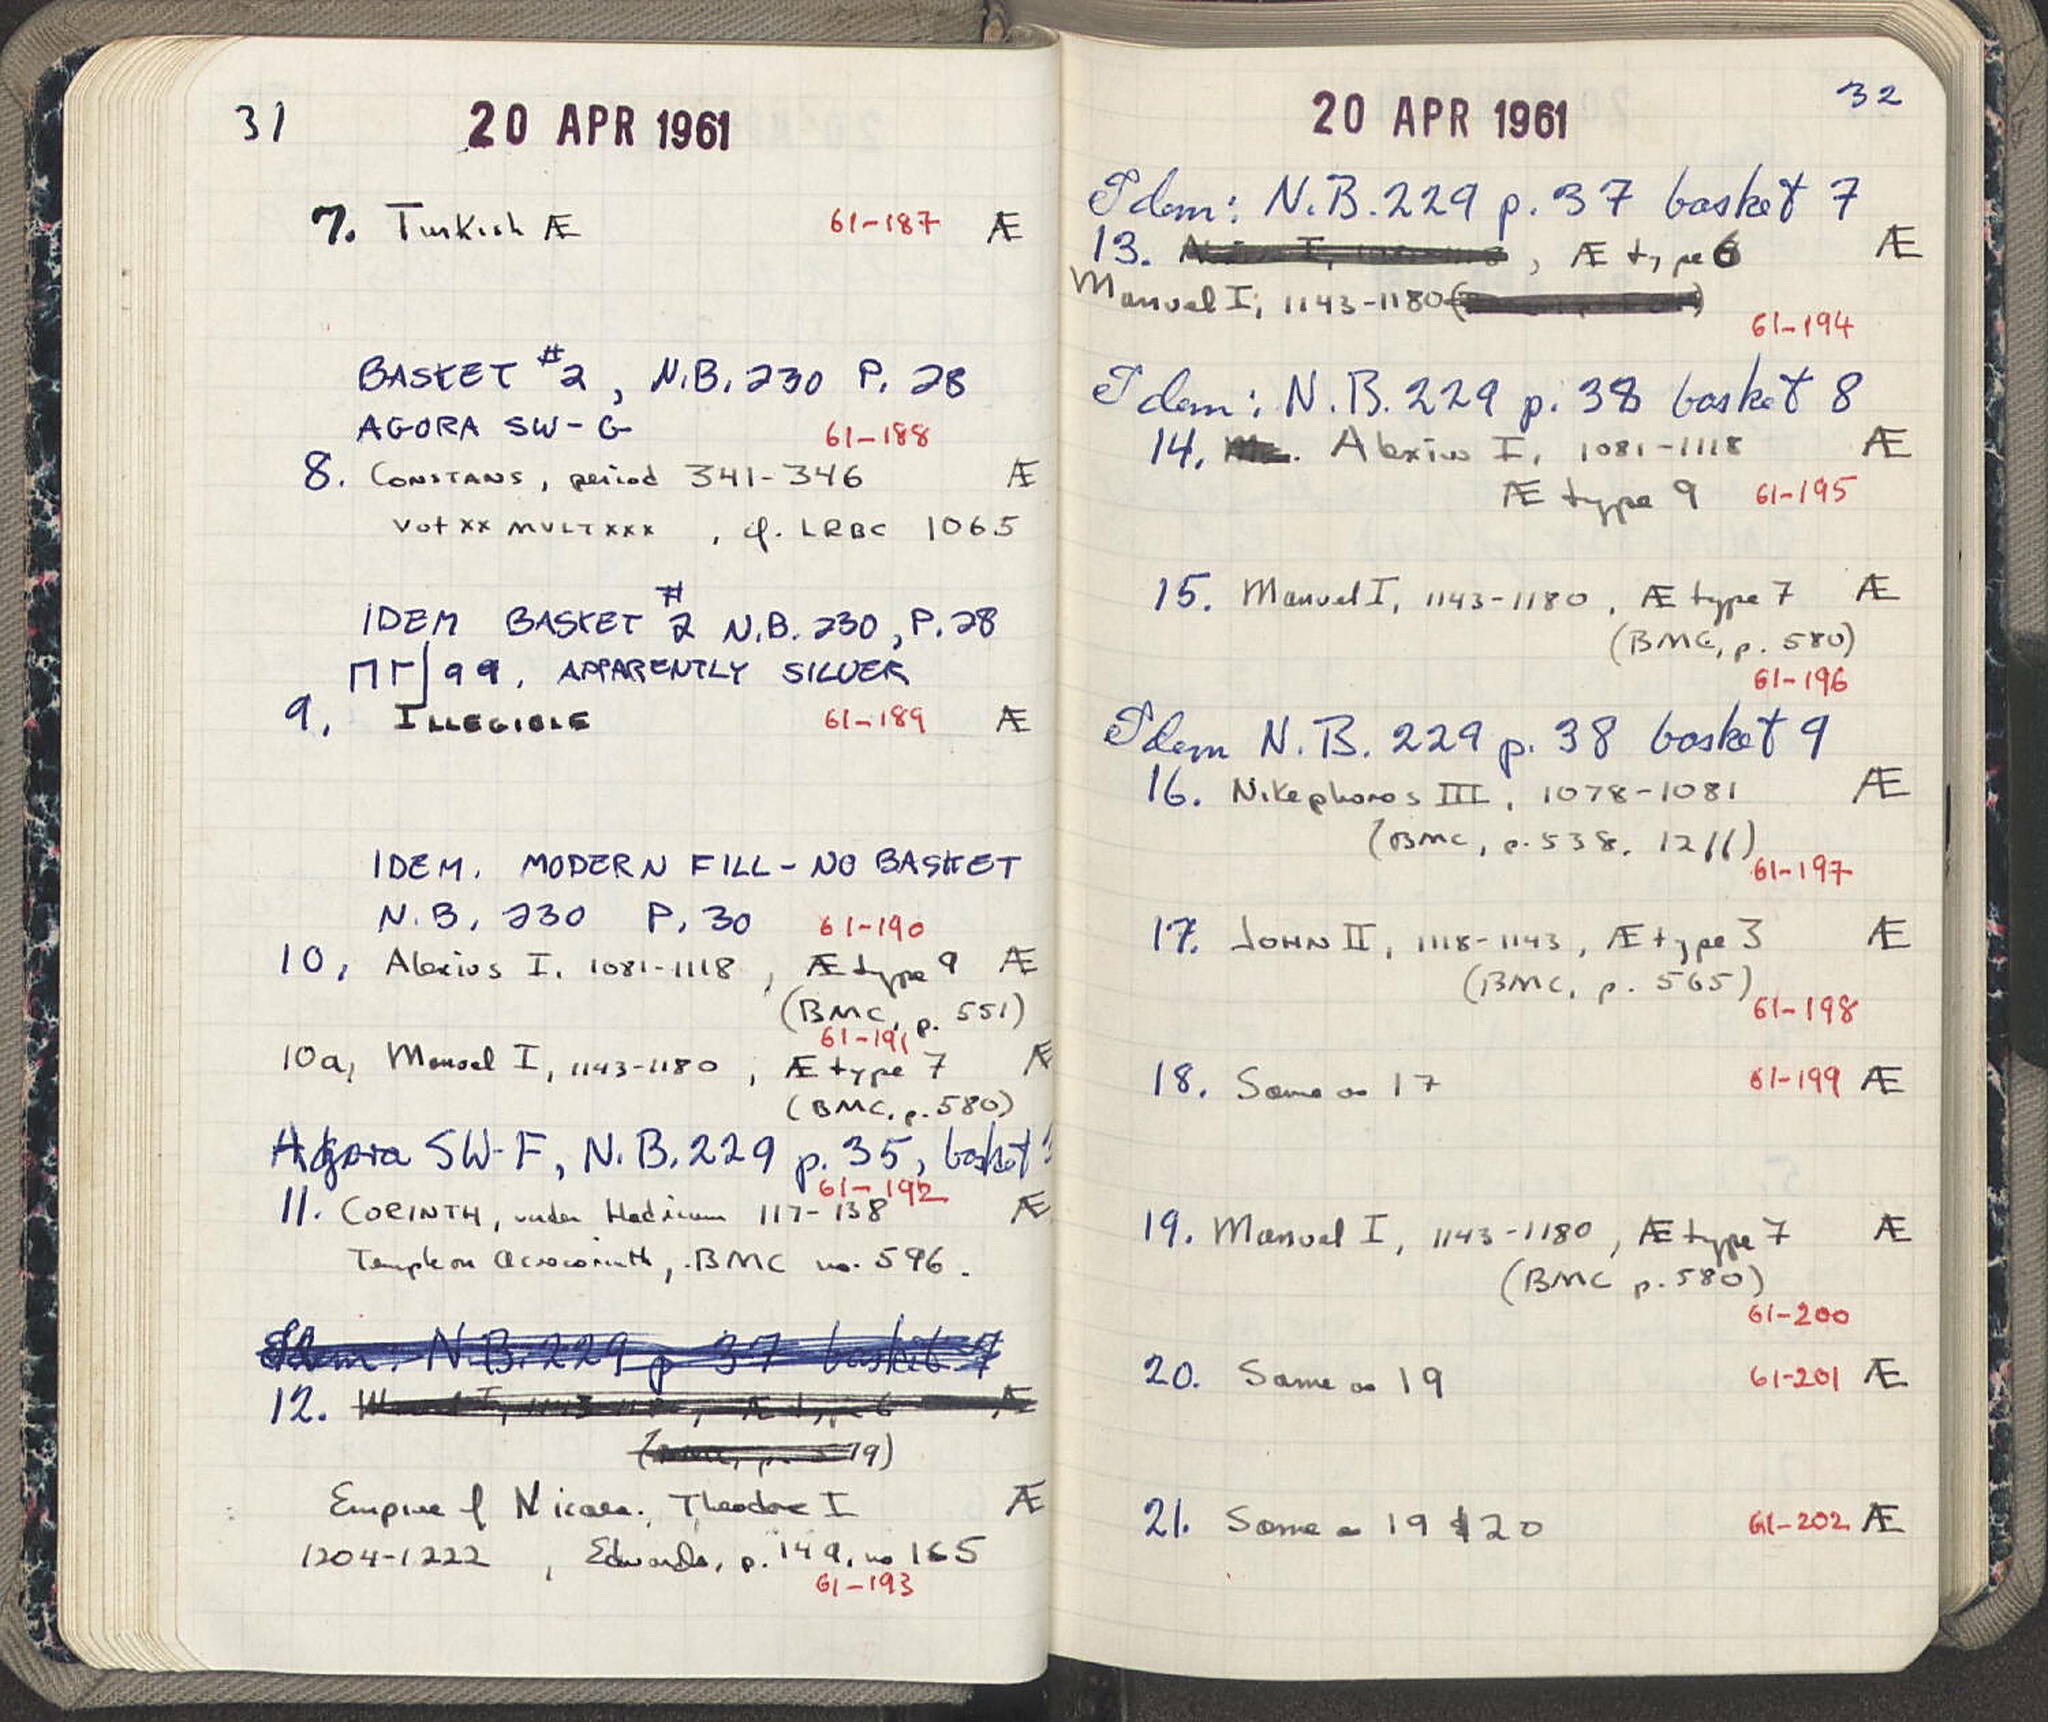 31
20 APR 1961
7. Turkish Æ 61-187 Æ
BASKET #2, N.B. 230 P. 28
AGORA SW-G 61-188
8. CONSTANS, period 341-346 Æ
Vot XX MVLT XXX, cf. LRBC 1065
IDEM BASKET #2 N.B. 230, P. 28
99, APPARENTLY SILVER
9. ILLEGIBLE 61-189 Æ
IDEM. MODERN FILL - NO BASKET
N.B. 230 P. 30 61-190
10, Alexius I, 1081-1118, Æ type 9 Æ
(BMC, p. 551)
61-191
10a, Manuel I, 1143-1180, Æ type 7 Æ
(BMC, p. 580)
Agora SW-F, N.B. 229 p. 35, basket
61-192
11. CORINTH, under Hadrian 117-138 Æ
Temple on Acrocorinth, BMC no. 596.
Idem: N.B. 229 p 37 basket 7
12. Manuel I, 1143-1180, Æ type 6 Æ
(BMC, p. 579)
Empire of Nicaea, Theodore I Æ
1204-1222, Edwards, p. 149, no 165
61-193
32
20 APR 1961
Idem: N.B. 229 p. 37 basket 7
13. , Æ type 6 Æ
Manuel I, 1143-1180
61-194
Idem: N.B. 229 p. 38 basket 8
14. Alexius I, 1081-1118 Æ
Æ type 9 61-195
15. Manuel I, 1143-1180, Æ type 7 Æ
(BMC, p. 580)
61-196
Idem N.B. 229 p. 38 basket 9
16. Nikephoros III, 1078-1081 Æ
(BMC, p. 538, 12//)
61-197
17. JOHN II, 1118-1143, Æ type 3 Æ
(BMC, p. 565)
61-198
18. Same as 17 61-199 Æ
19. Manuel I, 1143-1180, Æ type 7 Æ
(BMC p. 580)
61-200
20. Same as 19 61-201 Æ
21. Same as 19 & 20 61-202 Æ